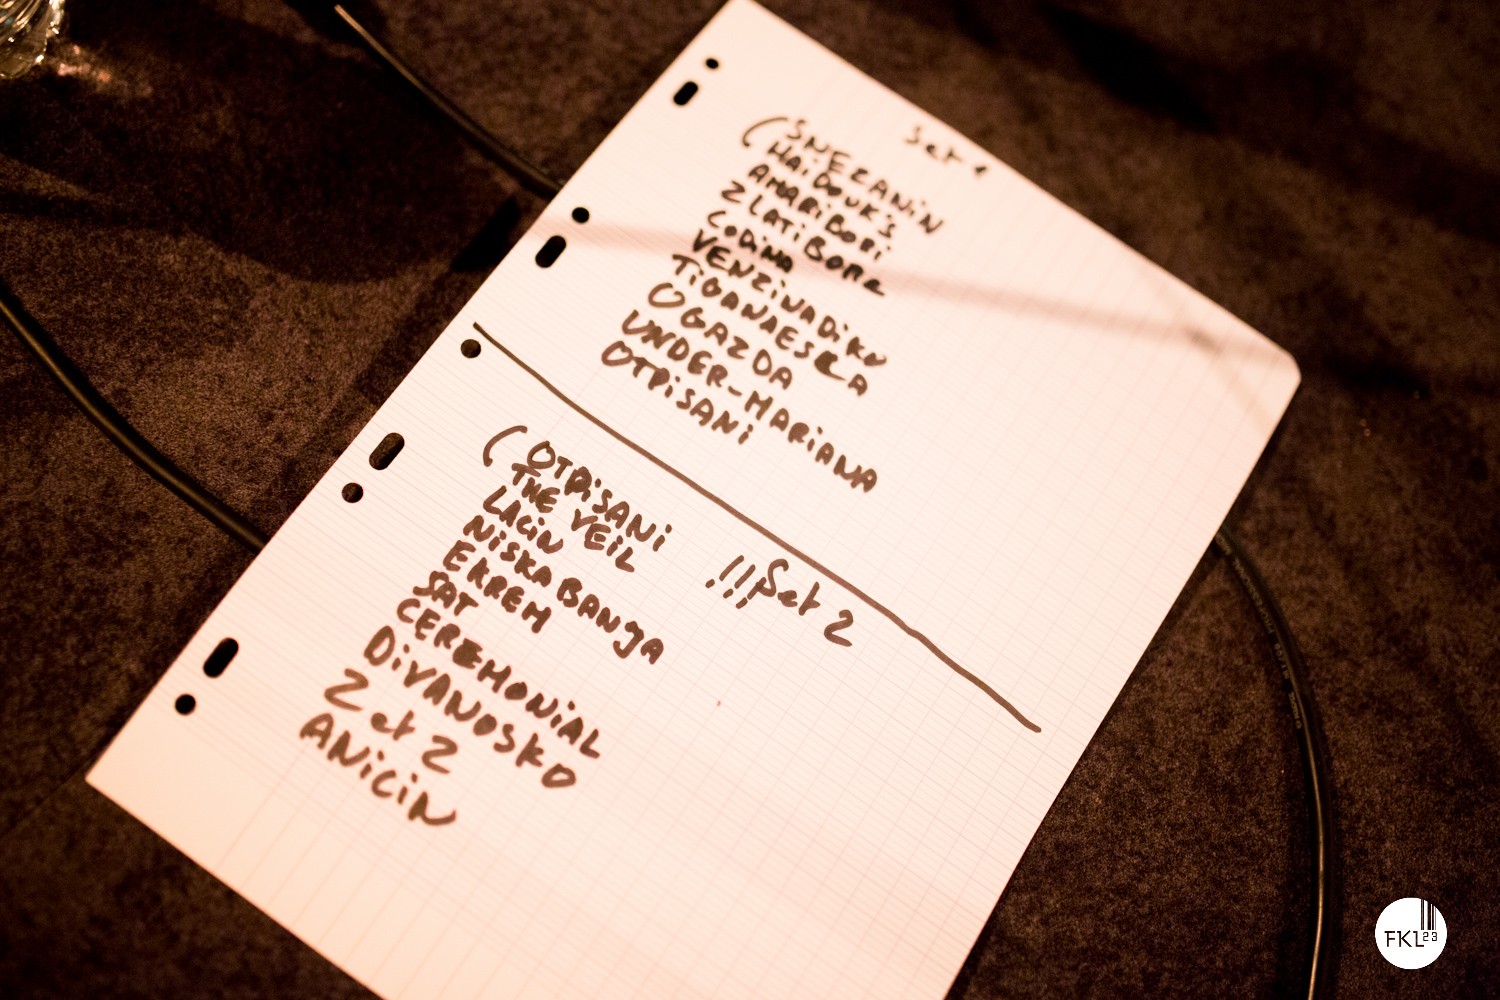 Set 1
( SNEZANIN
HAiDOUK'S
AMARiBORi
ZLATiBORe
CODiMA
VENZiNADiKO
TiGANAESRA
OGAZDA
UNDER-MARiANA
OTPiSANi
!!! Set 2
( OTPiSANi
THE VEiL
LAciN
NiSKA BANJA
EKREM
SAT
CEREMONiAL
DiVANOSKO
2 et 2
ANiCiN
FKL23